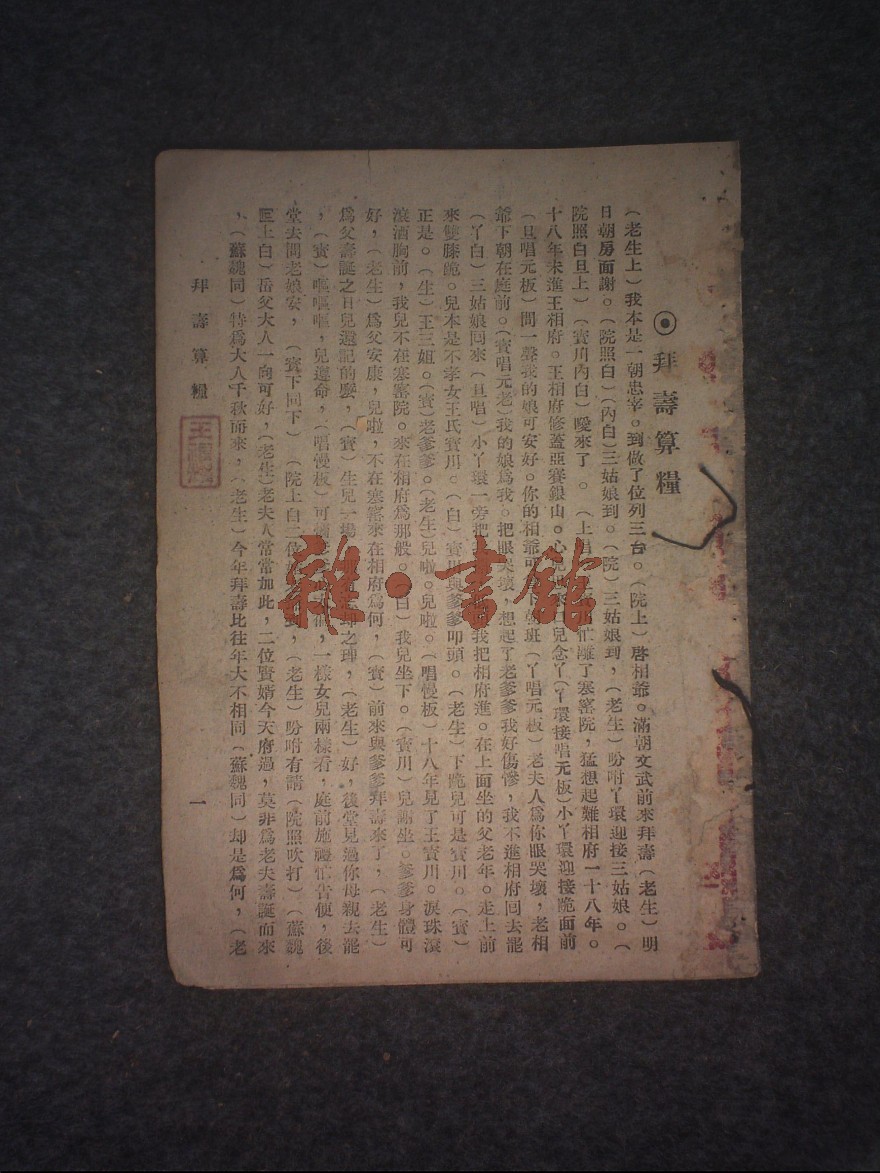 拜壽算糧
(老生上)我本是一朝忠宰。到做了位列三台。(院上)啓相爺。滿朝文武前來拜壽(老生)明
日朝房面謝。(院照白)(內白)三姑娘到。(院)三姑娘到,(老生)吩咐丫環迎接三姑娘。(
院照白旦上)(寳川內白)噯來了。(上唱 忙離了寒窰院,猛想起離相府一十八年。
十八年未進王相府。王相府修蓋亞賽銀山。心 兒念丫(丫環接唱元板)小丫環迎接跪面前
(旦唱元板)問一聲我的娘可安好。你的相爺可 下朝班(丫唱元板)老夫人爲你眼哭壞,老相
爺下朝在庭前。(寳唱元老)我的娘爲我。把眼哭壞 想起了老爹爹我好傷慘,我不進相府回去罷
(丫白)三姑娘回來(旦唱)小丫環一旁把 我把相府進。在上面坐的父老年。走上前
來雙膝跪。兒本是不孝女王氏寳川。(白)寳川與爹爹叩頭。(老生)下跪兒可是寳川。(寳)
正是。(生)王三姐。(寳)老爹爹。(老生)兒啦。兒啦。(唱慢板)十八年見了王寳川。淚珠滾
滾洒胸前,我兒不在寒窰院。來在相府爲那般。(白)我兒坐下。(寳川)兒謝坐。爹爹身體可
好,(老生)爲父安康,兒啦,不在寒窰來在相府爲何,(寳)前來與爹爹拜壽來了,(老生)
爲父壽誕之日兒還記的麽,(寳)生兒一場 却之理,(老生)好,後堂見過你母親去罷
,(寳)嘔嘔嘔,兒遵命,(唱慢板)可 一樣女兒兩樣看,庭前施禮忙告便,後
堂去問老娘安,(寳下同下)(院上白二位 到,(老生)吩咐有請(院照吹打)(蘇魏
上白)岳父大人一向可好,(老生)老夫人常常如此,二位賢婿今天府過,莫非爲老夫壽誕而來
,(蘇魏同)特爲大人千秋而來,(老生)今年拜壽比往年大不相同(蘇魏同)却是爲何,(老
拜壽算糧
一
雜·書館